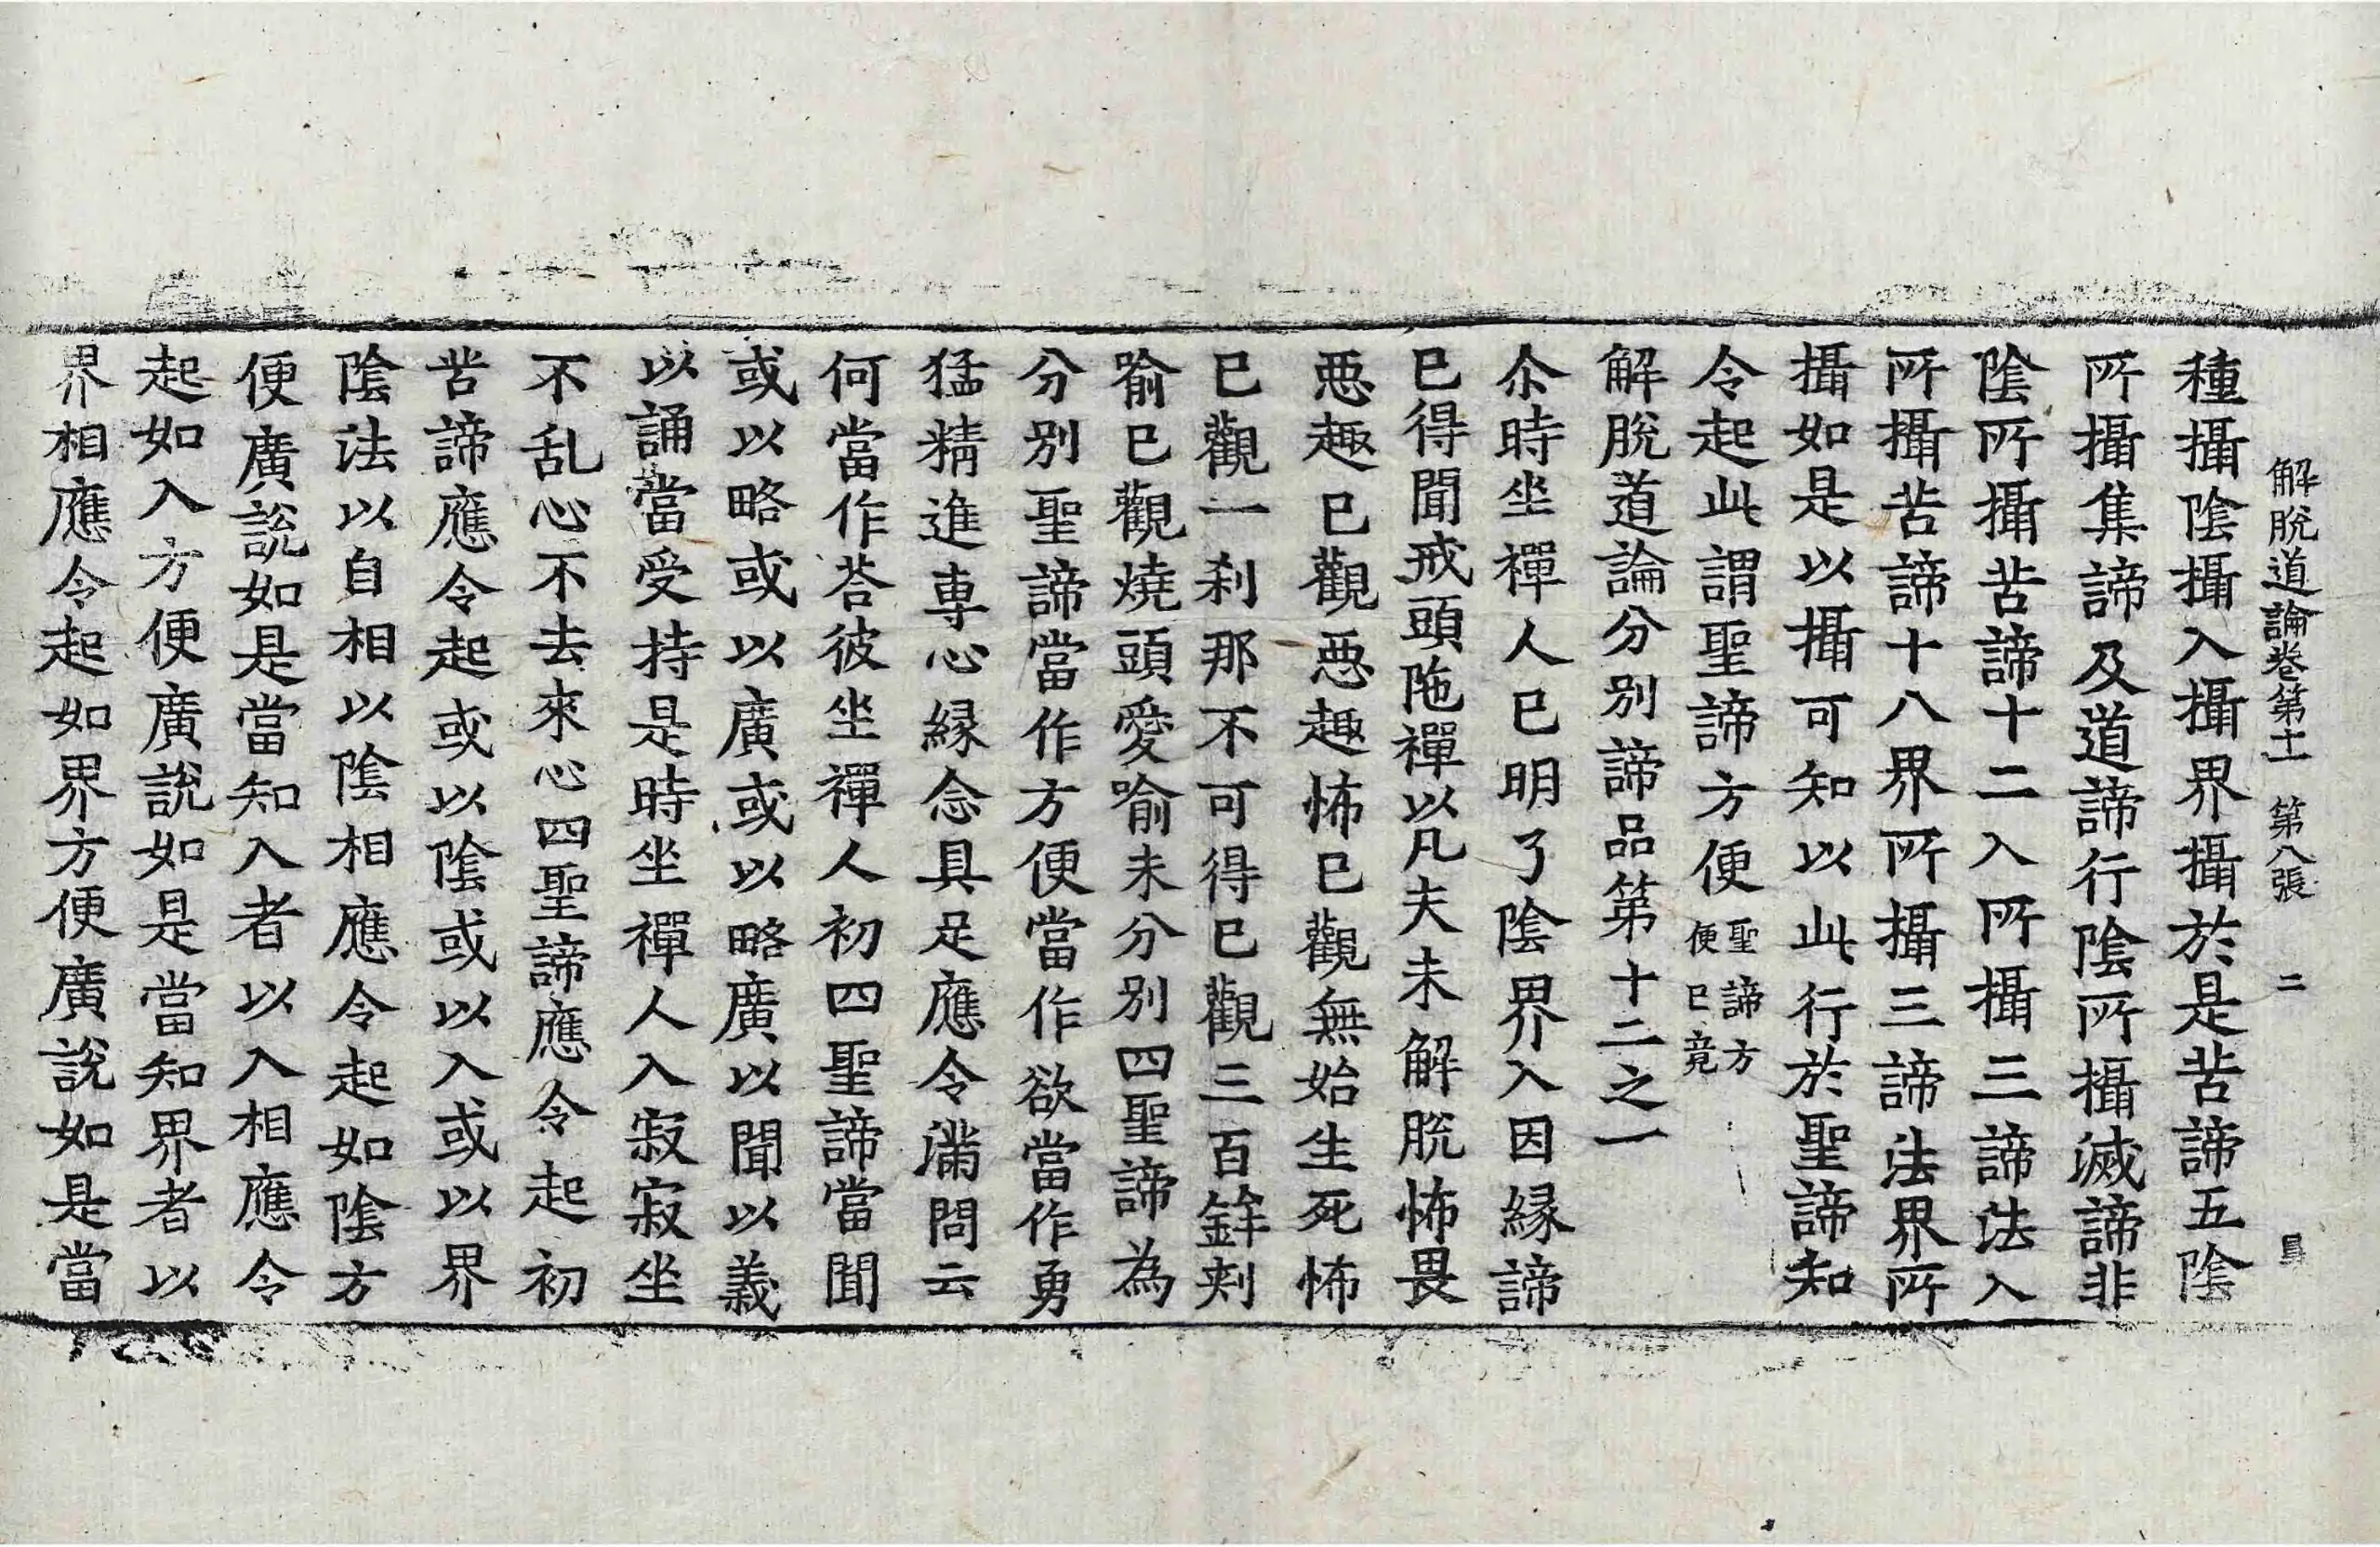 解脫道論卷第十一 第八張 二
種攝陰攝入攝界攝於是苦諦五陰
所攝集諦及道諦行陰所攝滅諦非
陰所攝苦諦十二入所攝三諦法入
所攝苦諦十八界所攝三諦法界所
攝如是以攝可知以此行於聖諦知
令起此謂聖諦方便聖諦方便已竟
解脫道論分別諦品第十二之一
尒時坐禪人已明了陰界入因縁諦
已得聞戒頭陁禪以凡夫未解脫怖畏
惡趣已觀惡趣怖已觀無始生死怖
已觀一刹那不可得已觀三百鉾刾
喻已觀燒頭愛喻未分別四聖諦為
分別聖諦當作方便當作欲當作勇
猛精進專心縁念具足應令滿問云
何當作荅彼坐禪人初四聖諦當聞
或以略或以廣或以略廣以聞以義
以誦當受持是時坐禪人入寂寂坐
不乱心不去來心四聖諦應令起初
苦諦應令起或以陰或以入或以界
陰法以自相以陰相應令起如陰方
便廣說如是當知入者以入相應令
起如入方便廣說如是當知界者以
界相應令起如界方便廣說如是當